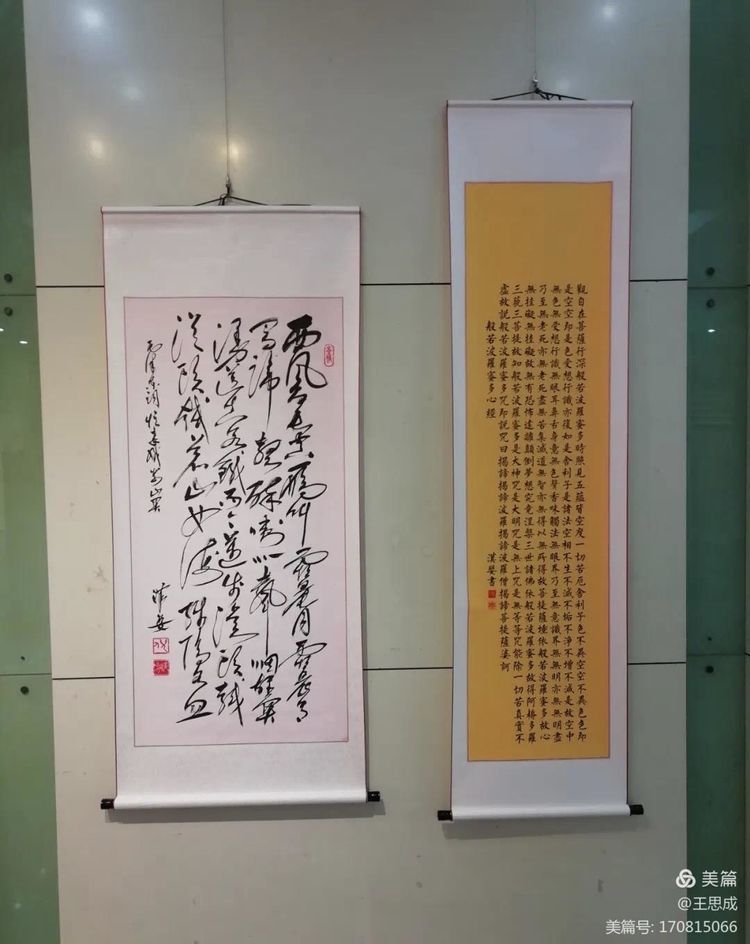 觀自在菩薩行深般若波羅蜜多時照見五蘊皆空度一切苦厄舍利子色不異空空不異色色即
是空空即是色受想行識亦復如是舍利子是諸法空相不生不滅不垢不淨不增不減是故空中
無色無受想行識無眼耳鼻舌身意無色聲香味觸法無眼界乃至無意識界無無明亦無無明盡
乃至無老死亦無老死盡無苦集滅道無智亦無得以無所得故菩提薩埵依般若波羅蜜多故心
無挂礙無挂礙故無有恐怖遠離顛倒夢想究竟涅槃三世諸佛依般若波羅蜜多故得阿耨多羅
三藐三菩提故知般若波羅蜜多是大神咒是大明咒是無上咒是無等等咒能除一切苦真實不
虛故說般若波羅蜜多咒即說咒曰揭諦揭諦波羅揭諦波羅僧揭諦菩提薩婆訶
般若波羅蜜多心經
書
西风烈长空雁叫霜晨月霜晨月
马蹄声碎喇叭声咽雄关
漫道真如铁而今迈步从头越
从头越苍山如海残阳如血
毛泽东词忆秦娥娄山关
美篇
@王思成
美篇号: 170815066